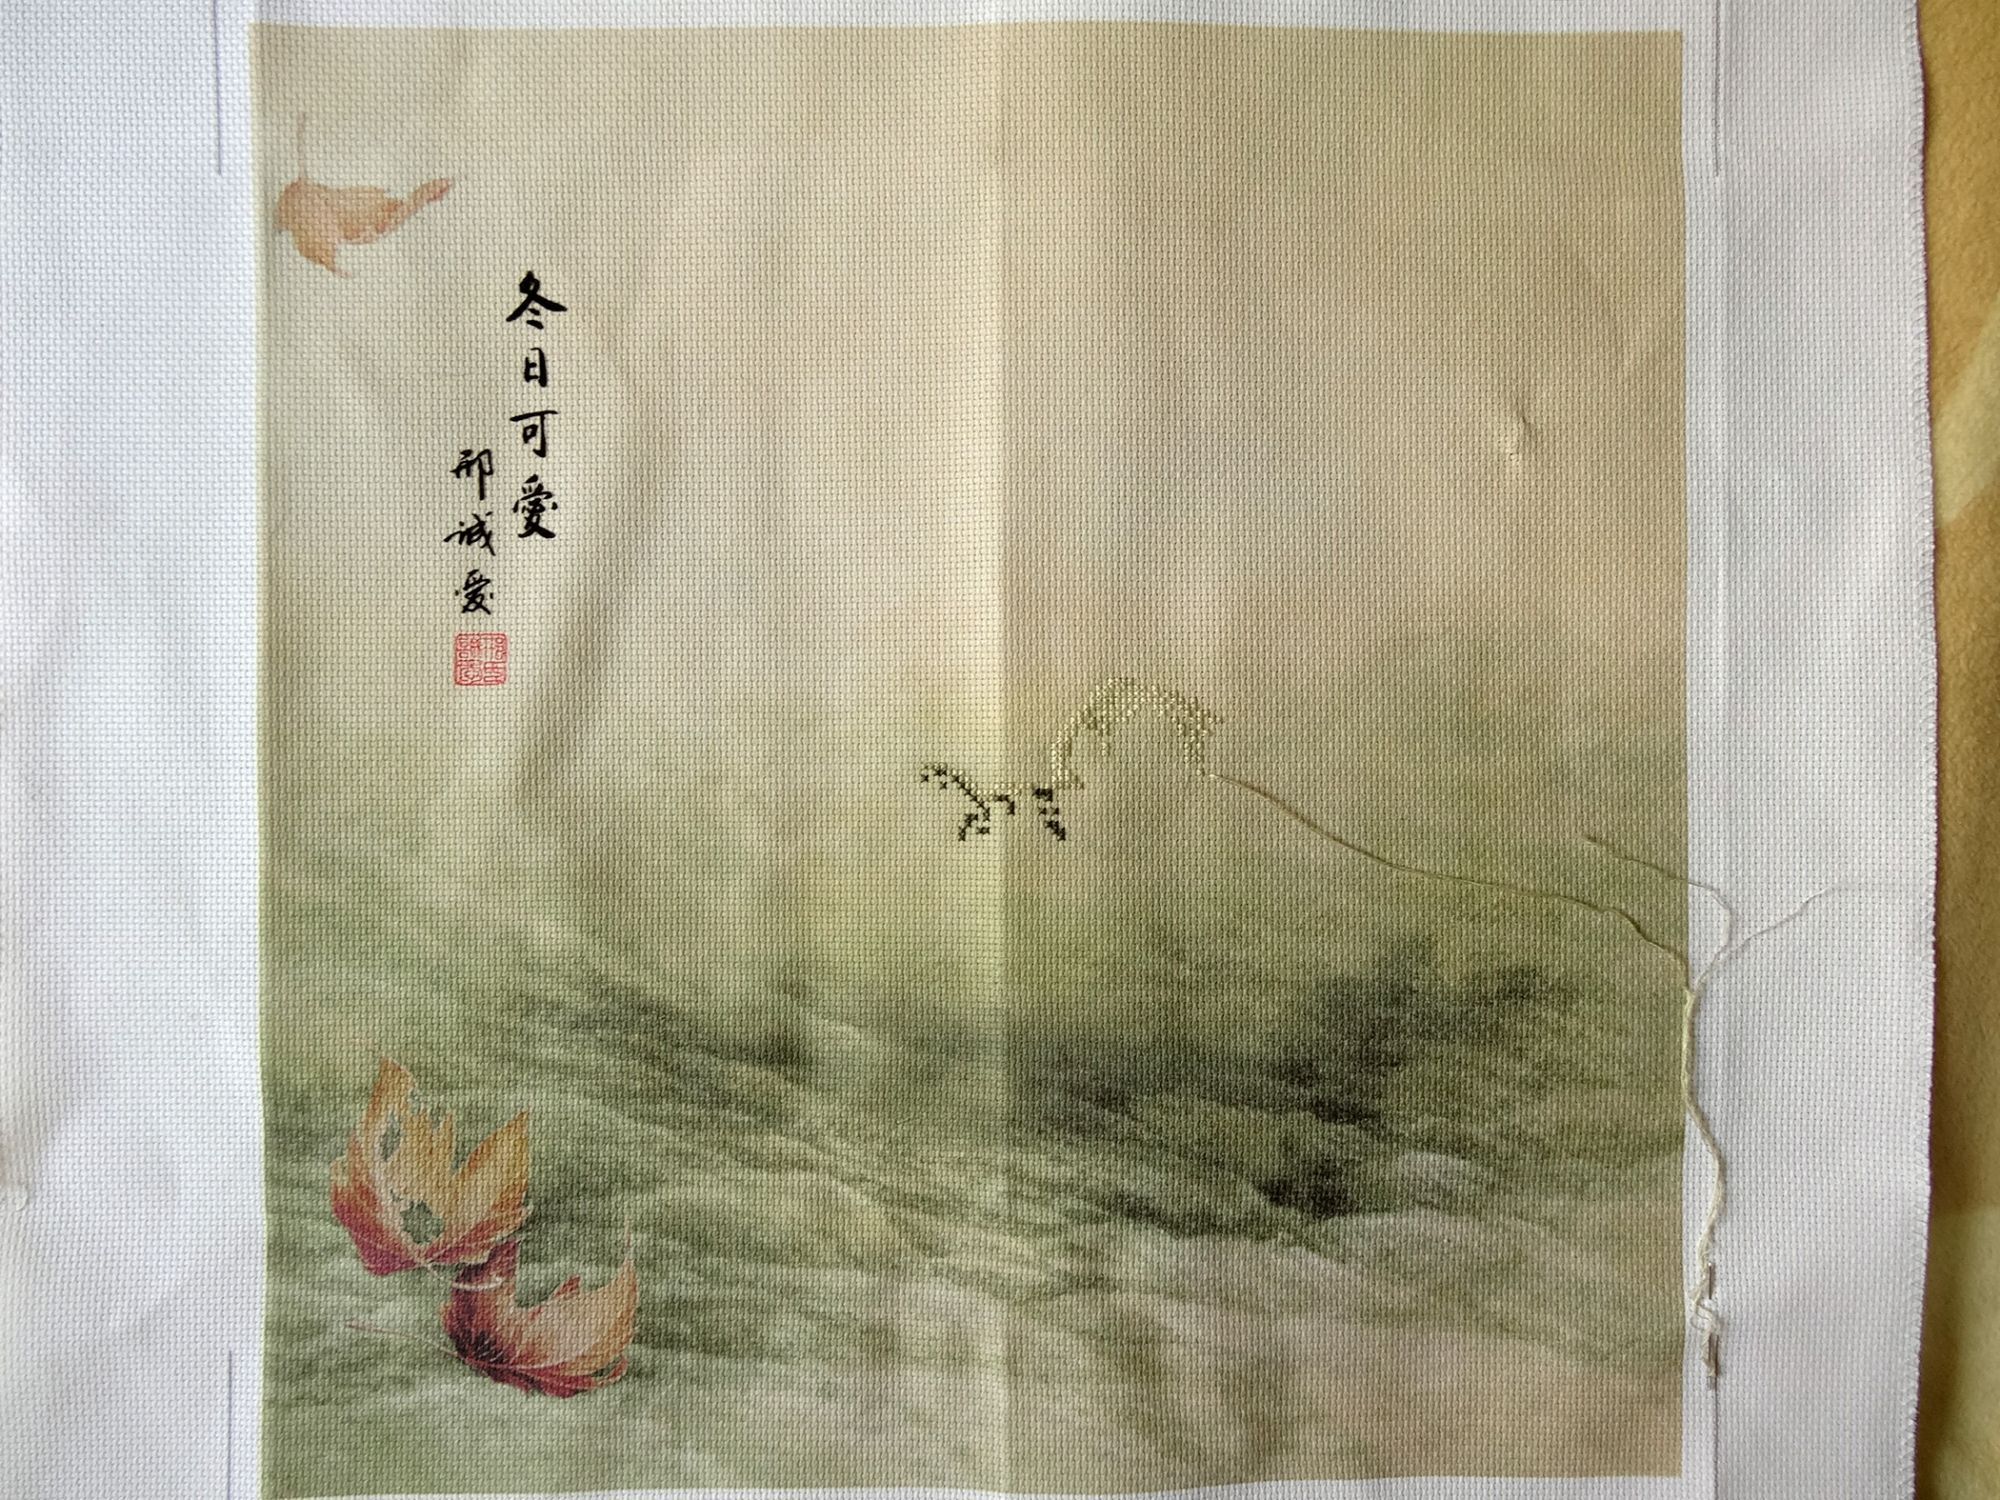 冬日可愛
邢诚愛